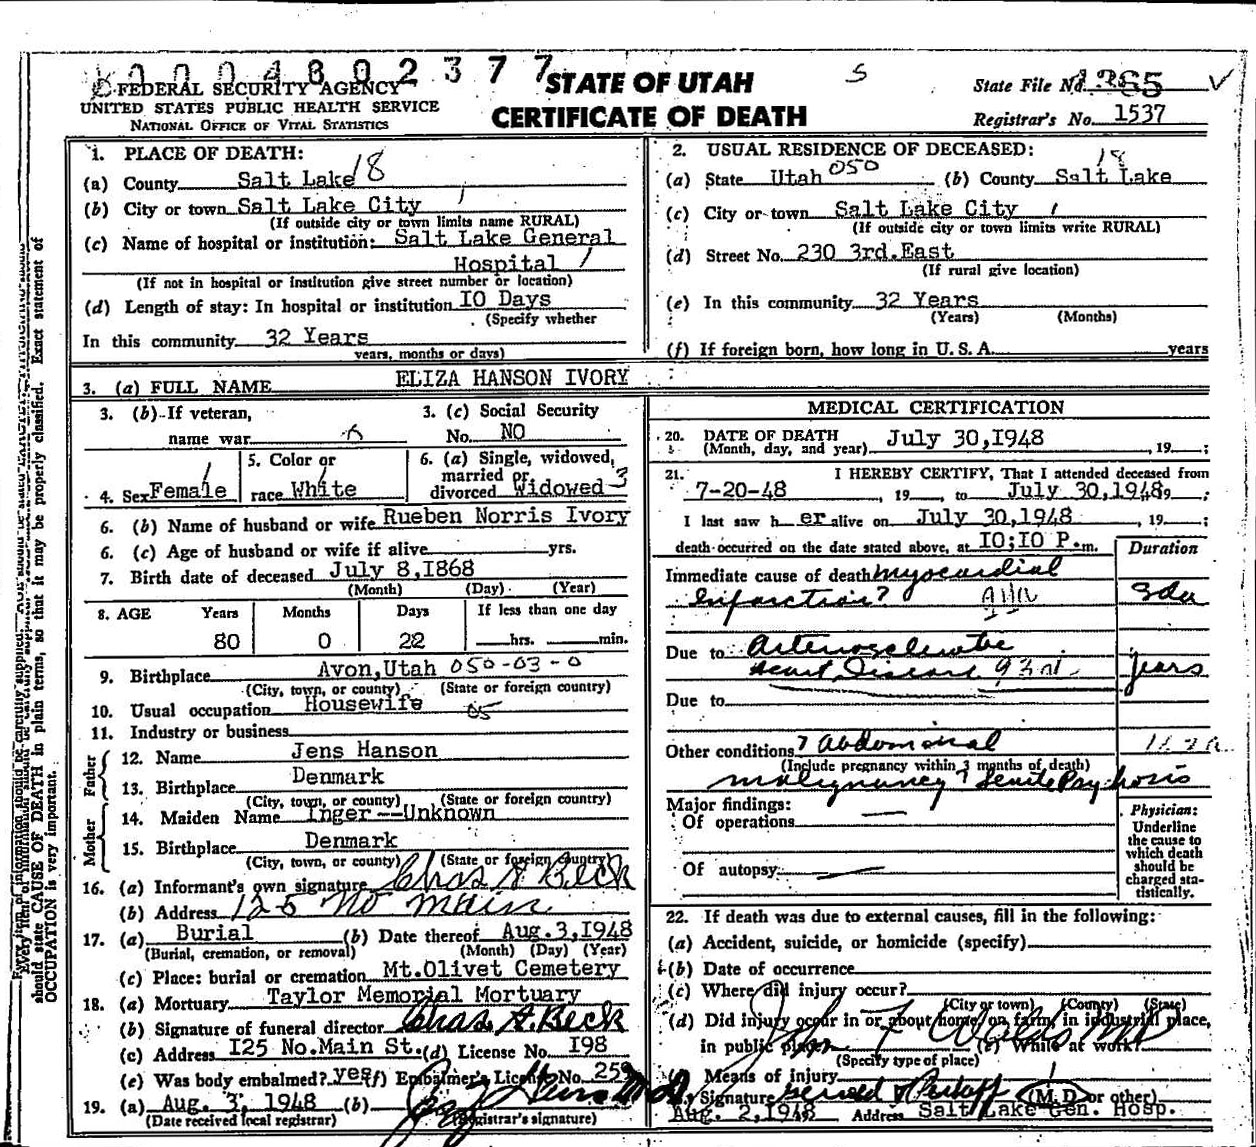 0004802377
FEDERAL SECURITY AGENCY
UNITED STATES PUBLIC HEALTH SERVICE
NATIONAL OFFICE OF VITAL STATISTICS
STATE OF UTAH
CERTIFICATE OF DEATH
State File No.
Registrar's No. 1537
1. PLACE OF DEATH:
(a) County Salt Lake 18
(b) City or town Salt Lake City
(If outside city or town limits name RURAL)
(c) Name of hospital or institution: Salt Lake General
Hospital
(If not in hospital or institution give street number or location)
(d) Length of stay: In hospital or institution IO Days
(Specify whether
In this community 32 Years
years, months or days)
2. USUAL RESIDENCE OF DECEASED:
(a) State Utah 050 (b) County Salt Lake 18
(c) City or town Salt Lake City
(If outside city or town limits write RURAL)
(d) Street No. 230 3rd.East
(If rural give location)
(e) In this community 32 Years
(Years) (Months)
(f) If foreign born, how long in U. S. A. years
3. (a) FULL NAME ELIZA HANSON IVORY
3. (b) If veteran,
name war
3. (c) Social Security
No. NO
4. Sex Female
5. Color or
race White
6. (a) Single, widowed,
married or
divorced Widowed 3
6. (b) Name of husband or wife Rueben Norris Ivory
6. (c) Age of husband or wife if alive yrs.
7. Birth date of deceased July 8,I868
(Month) (Day) (Year)
8. AGE Years Months Days If less than one day
80 0 22 hrs. min.
9. Birthplace Avon,Utah 050-03-0
(City, town, or county) (State or foreign country)
10. Usual occupation Housewife
11. Industry or business
Father
12. Name Jens Hanson
13. Birthplace Denmark
(City, town, or county) (State or foreign country)
Mother
14. Maiden Name Inger--Unknown
15. Birthplace Denmark
(City, town, or county) (State or foreign country)
16. (a) Informant's own signature Chas A Beck
(b) Address 125 No Main
17. (a) Burial (b) Date thereof Aug.3,I948
(Burial, cremation, or removal) (Month) (Day) (Year)
(c) Place: burial or cremation Mt.Olivet Cemetery
18. (a) Mortuary Taylor Memorial Mortuary
(b) Signature of funeral director Chas. A. Beck
(c) Address I25 No.Main St. (d) License No. I98
(e) Was body embalmed? yes (f) Embalmer's License No. 259
19. (a) Aug. 3, 1948 (b)
(Date received local registrar) (Registrar's signature)
MEDICAL CERTIFICATION
20. DATE OF DEATH July 30,I948
(Month, day, and year) , 19 ;
21. I HEREBY CERTIFY, That I attended deceased from
7-20-48 , 19 , to July 30,I948, 19 ;
I last saw h er alive on July 30,I948 , 19 ;
death occurred on the date stated above, at IO;IO P. m.
Duration
Immediate cause of death Myocardial
Infarction?
Due to Arteriosclerotic
Heart Disease years
Due to
Other conditions ? Abdominal
(Include pregnancy within 3 months of death)
malignancy? Senile Psychosis
Major findings:
Of operations
Of autopsy
Physician:
Underline
the cause to
which death
should be
charged sta-
tistically.
22. If death was due to external causes, fill in the following:
(a) Accident, suicide, or homicide (specify)
(b) Date of occurrence
(c) Where did injury occur?
(City or town) (County) (State)
(d) Did injury occur in or about home, on farm, in industrial place,
in public place? (e) While at work?
(Specify type of place)
Means of injury
Signature (M.D. or other)
Aug. 2,1948 Address Salt Lake Gen. Hosp.
should state CAUSE OF DEATH in plain terms, so that it may be properly classified. Exact statement of
OCCUPATION is very important.